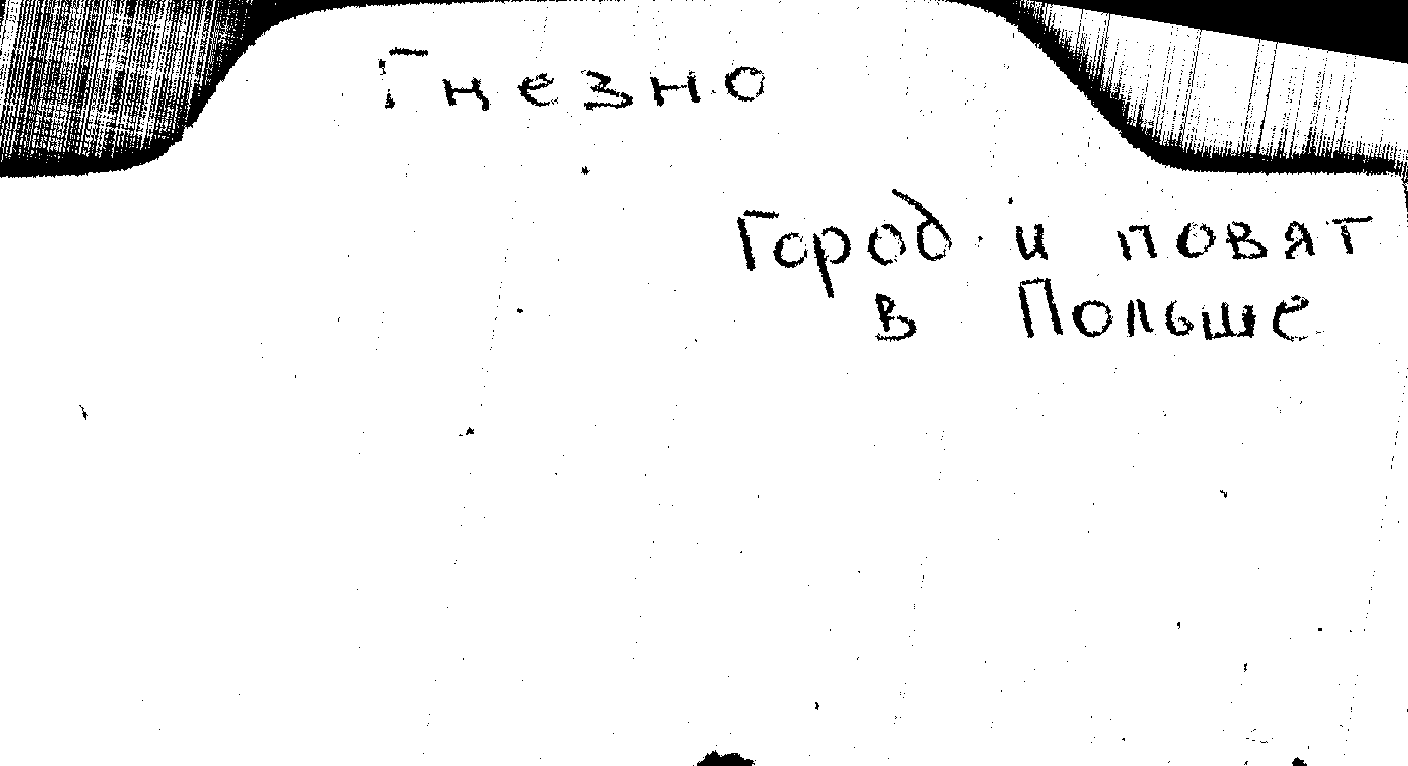 Гнезно
Город и повят
в Польше